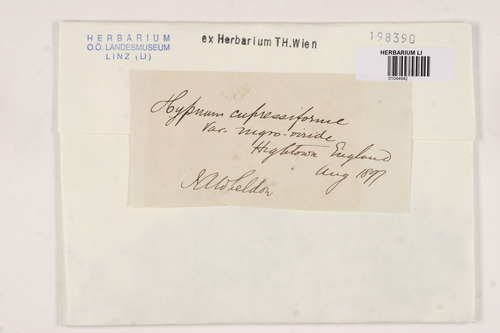 HERBARIUM
O.Ö. LANDESMUSEUM
LINZ (LI)
ex Herbarium TH.Wien
198390
HERBARIUM LI
01044942
Hypnum cupressiforme
Var. nigro-viride
Hightown England
Aug 1897
J A Wheldon